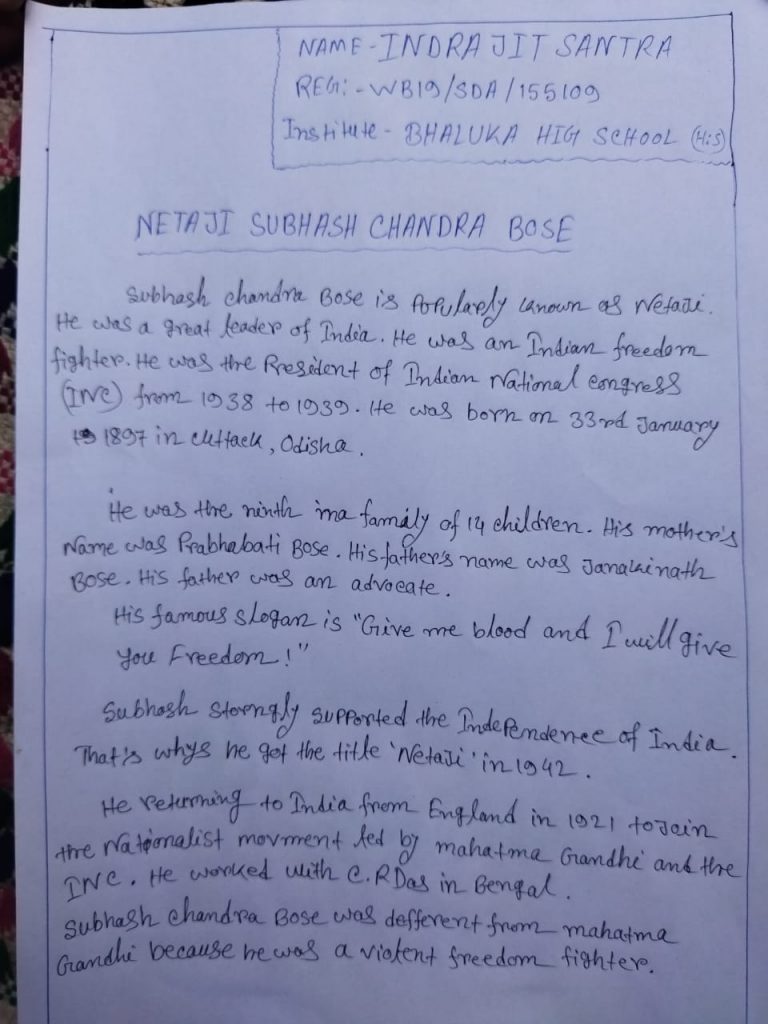 NAME - INDRAJIT SANTRA
REG: - WB19/SDA/155109
Institute - BHALUKA HIGH SCHOOL (H.S)
NETAJI SUBHASH CHANDRA BOSE
Subhash chandra Bose is Popularly known as Netaji.
He was a great leader of India. He was an Indian freedom
fighter. He was the President of Indian National congress
(INC) from 1938 to 1939. He was born on 33rd January
1897 in Cuttack, Odisha.
He was the ninth ina family of 14 children. His mother's
Name was Prabhabati Bose. His father's name was Janakinath
Bose. His father was an advocate.
His famous slogan is "Give me blood and I will give
you Freedom!"
Subhash storngly supported the Independence of India.
That's whys he got the title 'Netaji' in 1942.
He returning to India from England in 1921 to Join
the Nationalist movment led by mahatma Gandhi and the
INC. He worked with C.R Das in Bengal.
Subhash chandra Bose was defferent from mahatma
Gandhi because he was a violent freedom fighter.